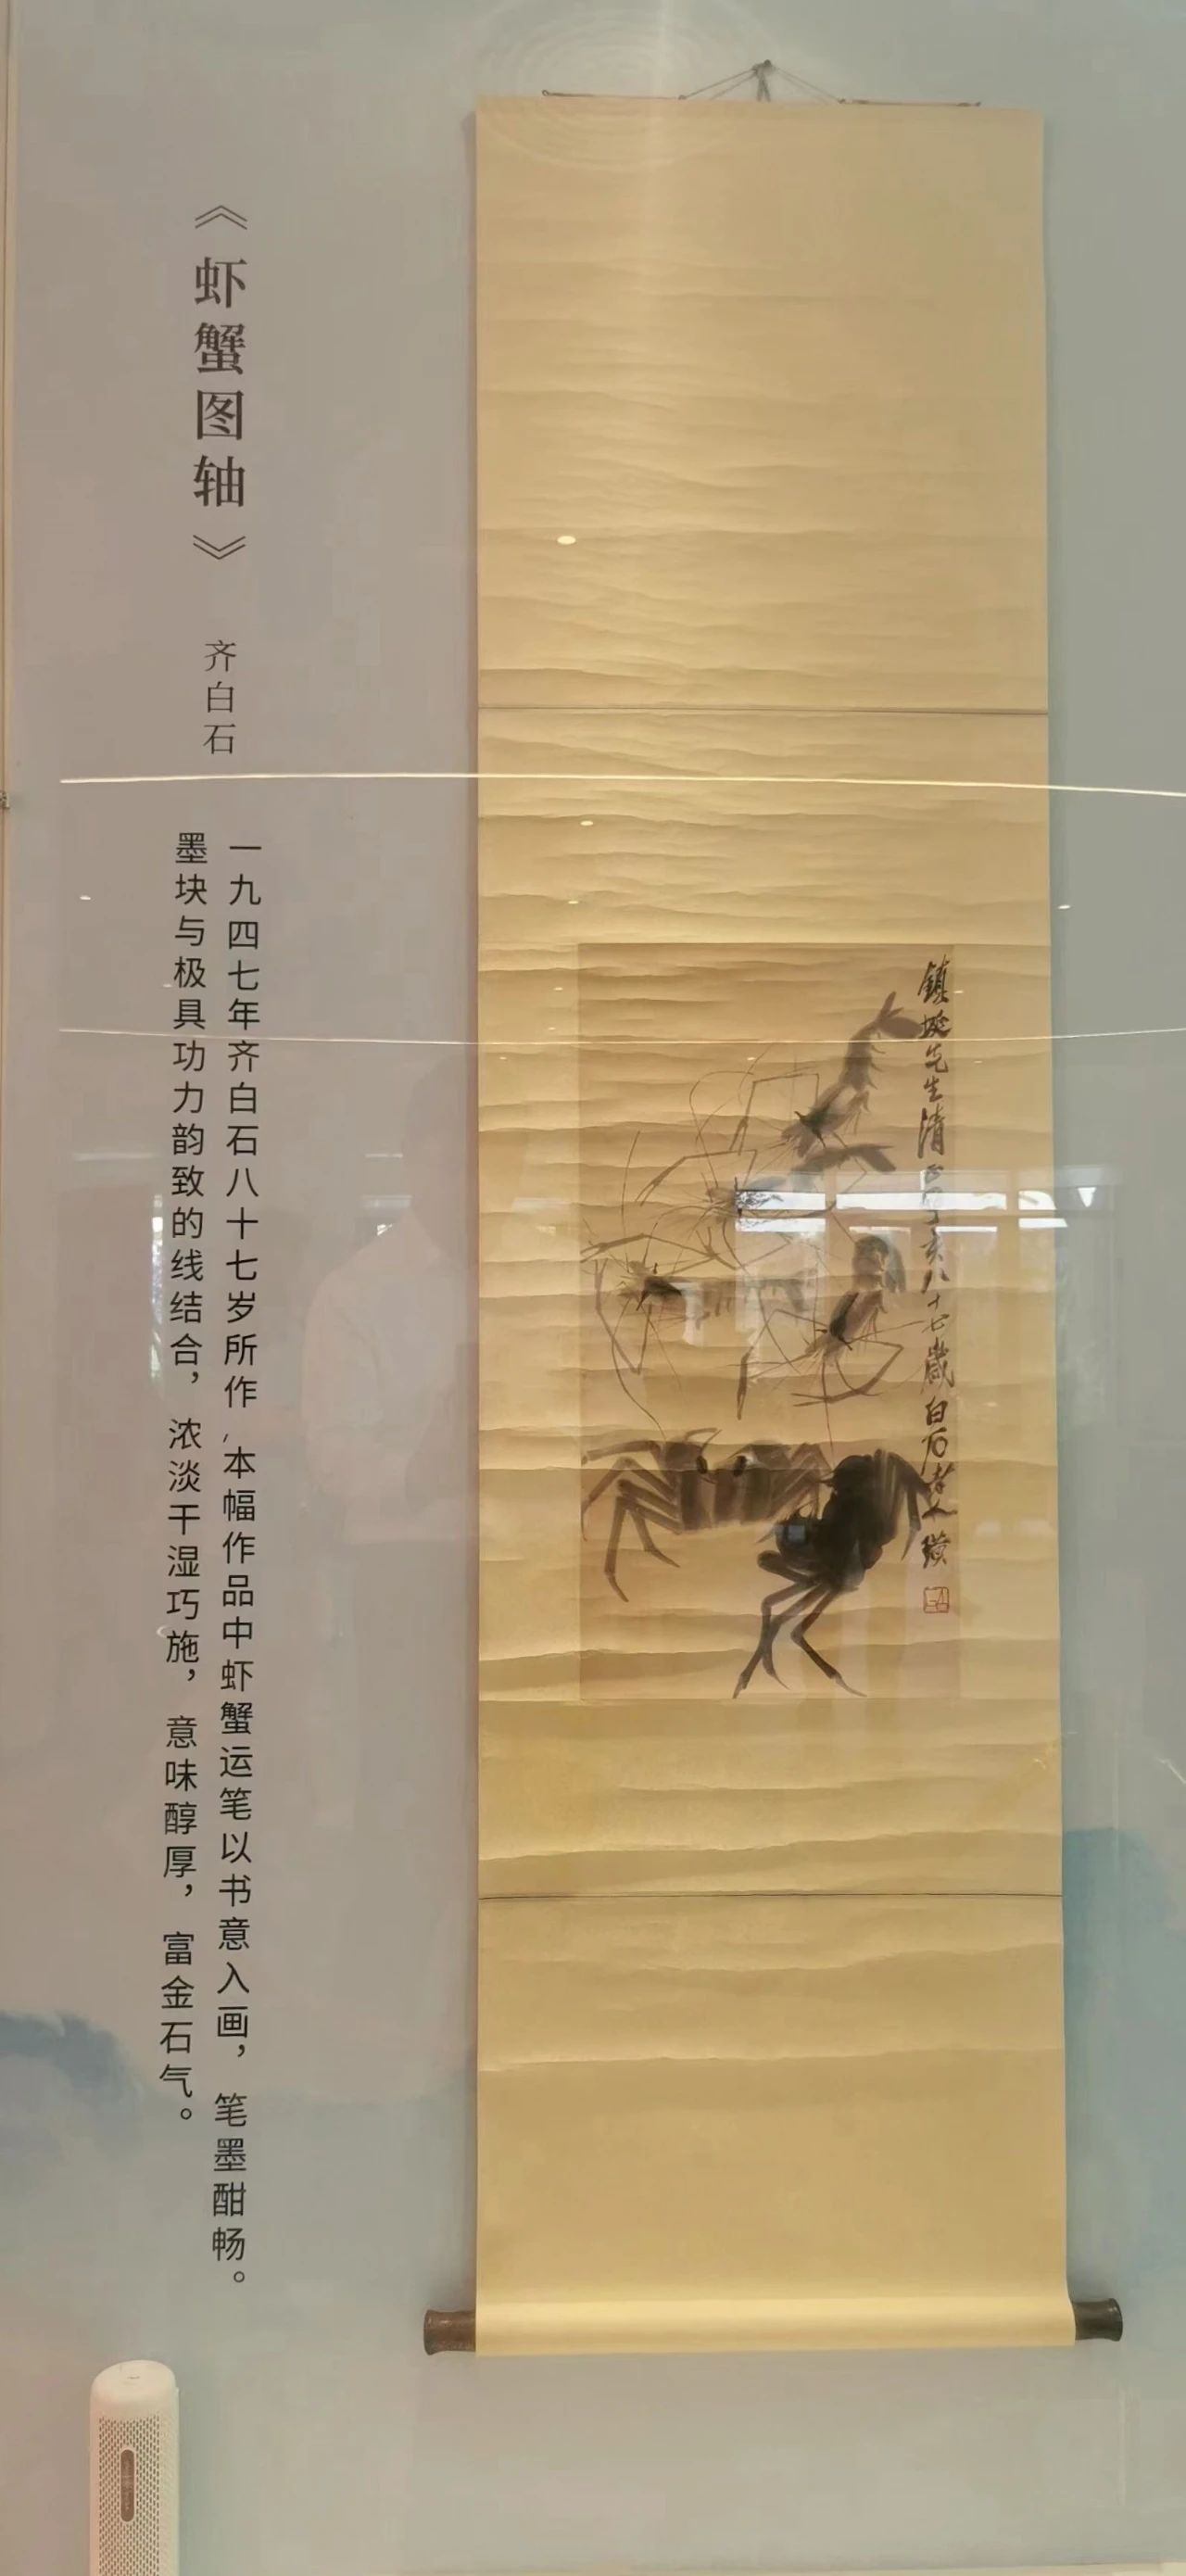 《虾蟹图轴》
齐白石
一九四七年齐白石八十七岁所作,本幅作品中虾蟹运笔以书意入画，笔墨酣畅。
墨块与极具功力韵致的线结合，浓淡干湿巧施，意味醇厚，富金石气。
先生清 亥八十七歲白石老人璜